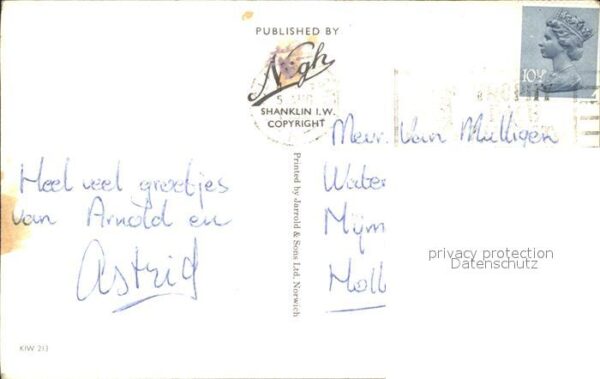 PUBLISHED BY
Nigh
SHANKLIN I.W.
COPYRIGHT
Heel veel groetjes
van Arnold en
Astrid
KIW 213
Printed by Jarrold & Sons Ltd. Norwich
10½P
Mevr. Van Mulligen
Water
Mijn
Holl
privacy protection
Datenschutz